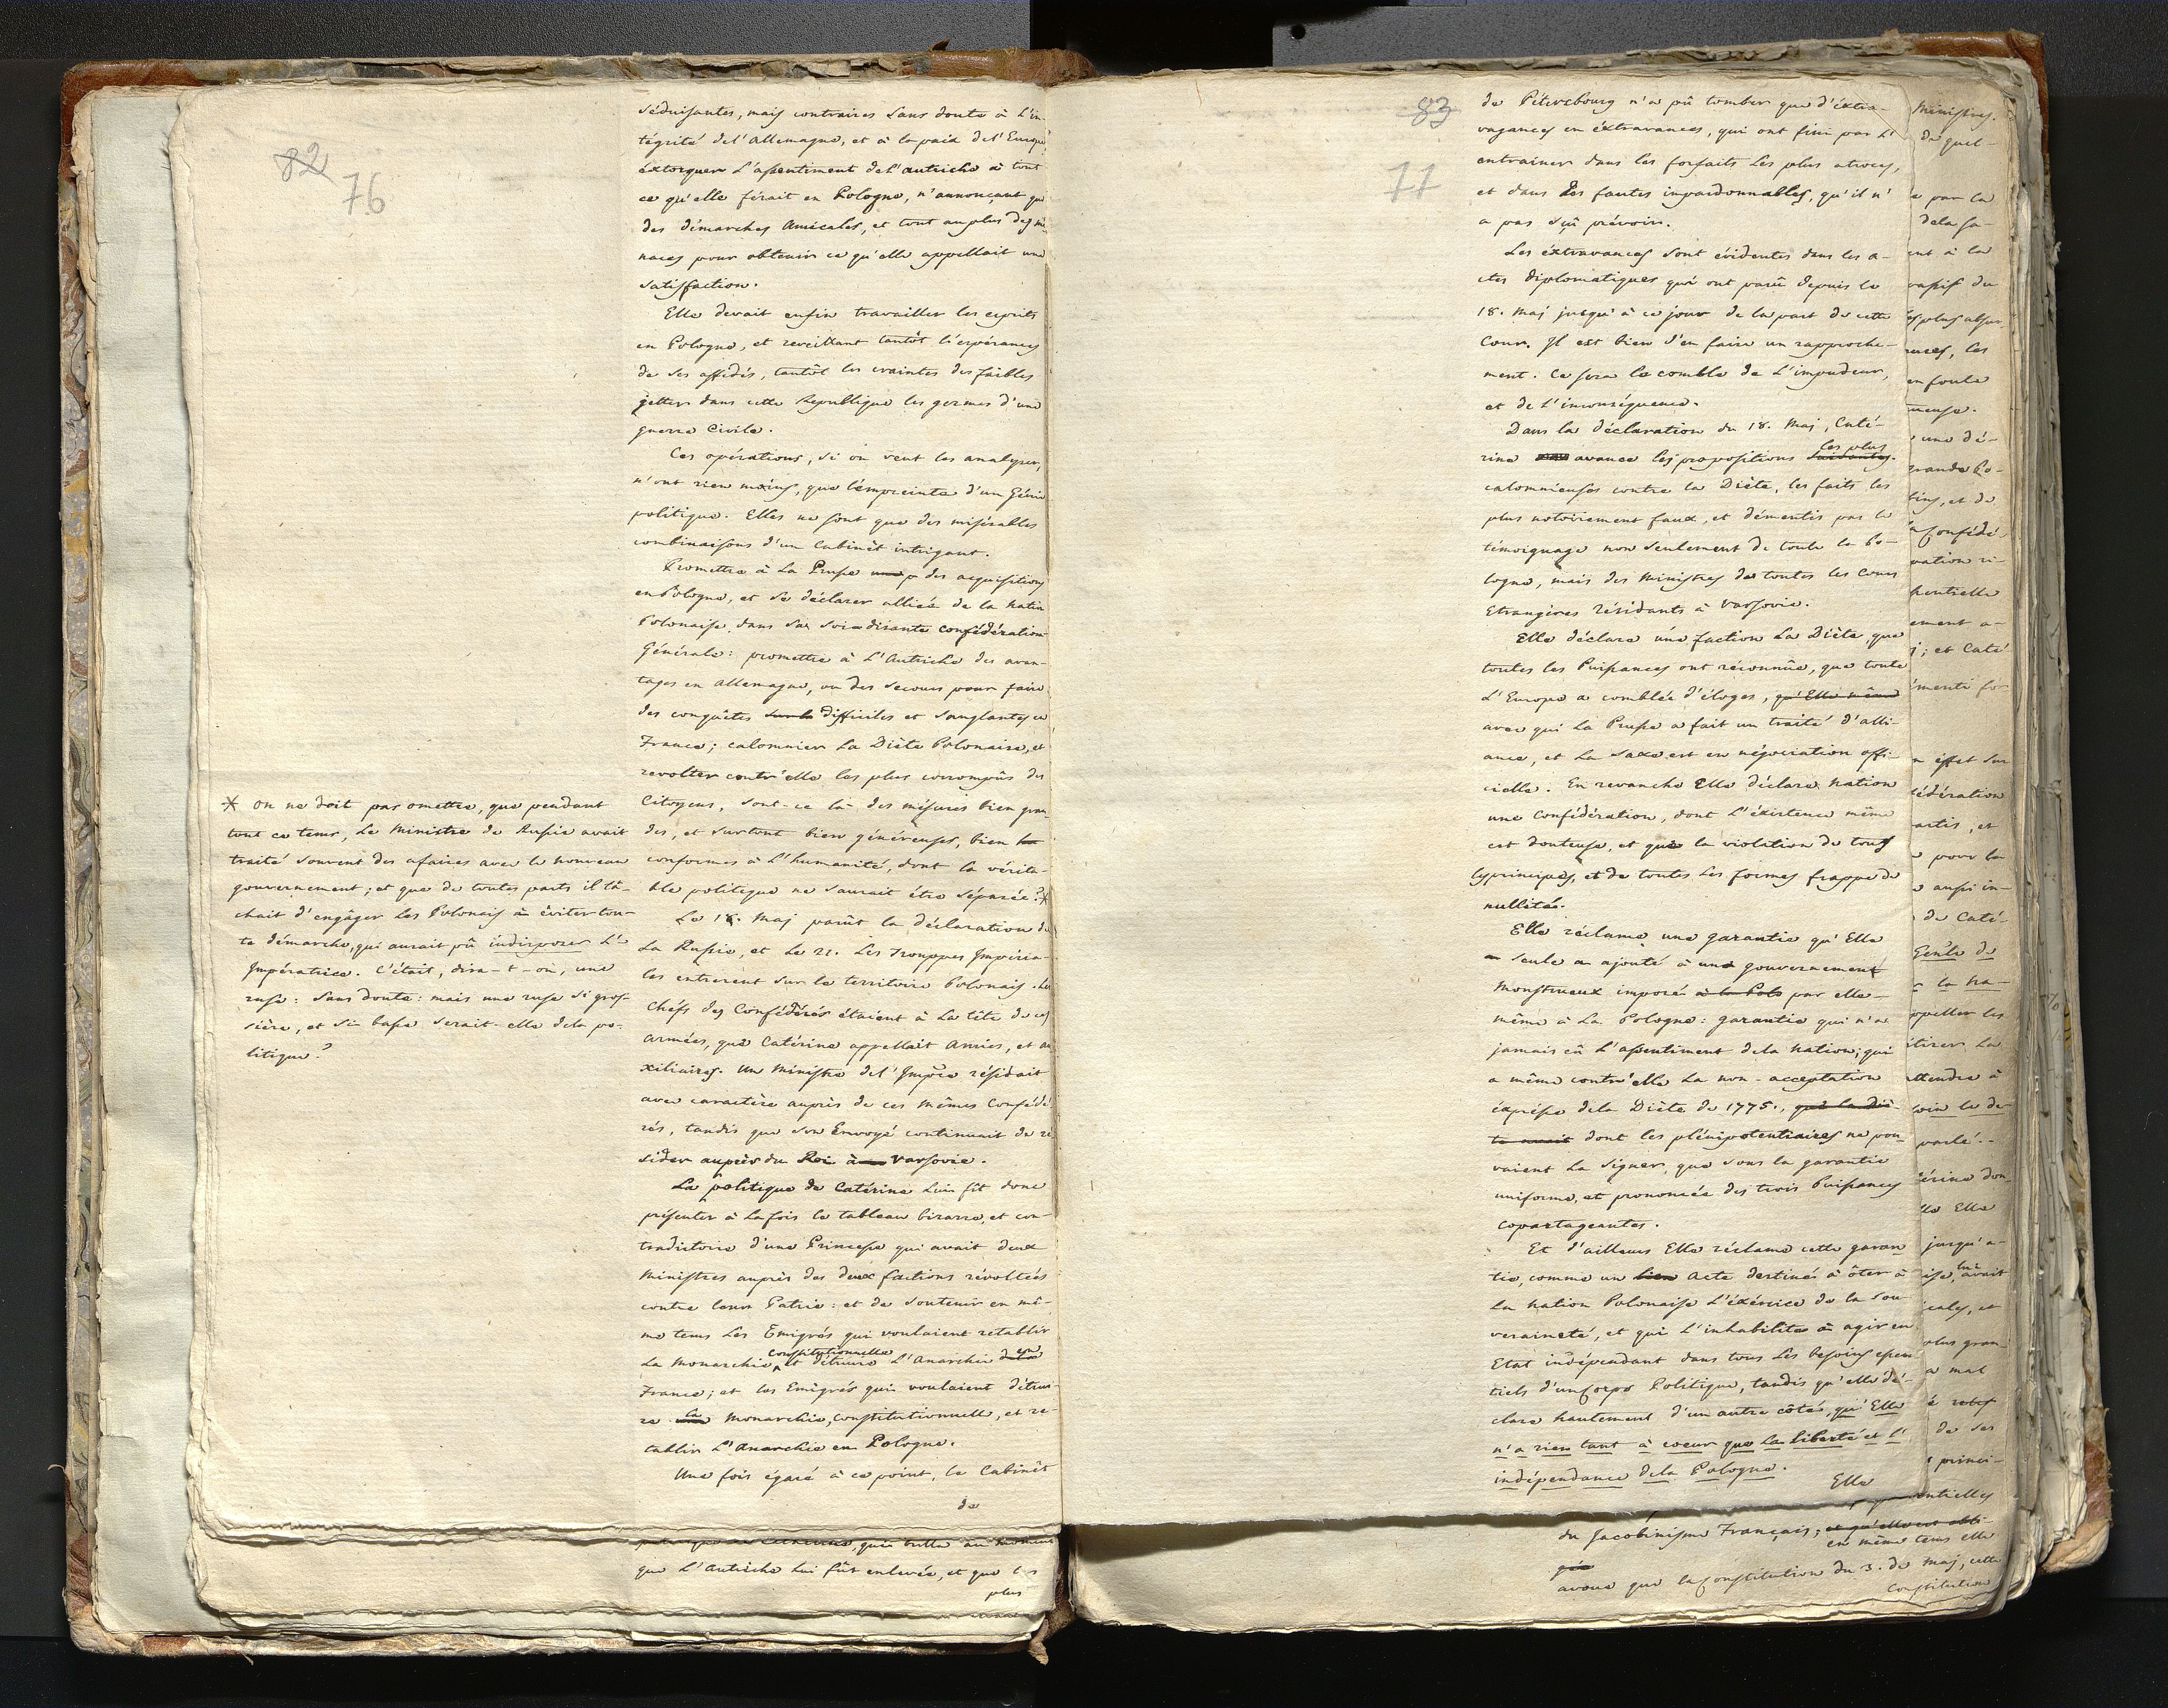 82
76
séduisantes, mais contraires sans doute à l'in-
tégrité del'Allemagne, et à la paix del'Europe
éxtorquer L'assentiment del'autriche à tout
ce qu'elle férait en Pologne, n'annonçant que
des démarches Amicales, et tout au plus des me-
naces pour obtenir ce qu'elle appellait une
satisfaction.
Elle devait enfin travailler les esprits
en Pologne, et reveillant tantôt l'espérances
de ses affidés, tantôt les craintes des faibles
jetter dans cette Republique les germes d'une
guerre Civile.
Ces opérations, si on veut les analyser,
n'ont rien moins, que l'émpreinte d'un Génie
politique. Elles ne sont que des misérables
combinaisons d'un Cabinêt intrigant.
Promettre à La Prusse des acquisitions
en Pologne, et se déclarer alliée de la Nation
Polonaise, dans sa soi-disante confédération
Générale: promettre à L'Autriche des avan-
tages en Allemagne, ou des secours pour faire
des conquêtes difficiles et sanglantes en
France; calomnier La Diète Polonaise, et
revolter contr'elle les plus corrompûs des
Citoyens, sont-ce là des mésures bien gran-
des, et surtout bien généreuses, bien
conformes à L'humanité, dont la vérita-
ble politique ne saurait être séparée? *
Le 18. Maj parût la déclaration de
La Russie, et Le 21. Les Trouppes Impéria-
les entrerent sur le territoire Polonais. Les
Chéfs des Confédérés étaient à La tête de ces
Armées, que Catérine appellait Amies, et au-
xiliaires. Un Ministre del'Impce résidait
avec caractère auprès de ces mêmes Confédé-
rés, tandis que son Envoyé continuait de ré-
sider auprès du Roi à Varsovie.
La politique de Catérine Lui fit donc
présenter à lafois le tableau bizarre, et con-
tradictoire d'une Princesse qui avait deux
Ministres auprès des deux factions révoltées
contre leur Patrie: et de soutenir en mê-
me tems Les Emigrés qui voulaient retablir
La Monarchie constitutionnelle et détruire L'Anarchie en
France; et les Emigrés qui voulaient détrui-
re la Monarchie, constitutionnelle, et re-
tablir L'Anarchie en Pologne.
Une fois égaré à ce point, le Cabinêt
de
* on ne doit pas omettre, que pendant
tout ce tems, Le Ministre de Russie avait
traité souvent des afaires avec le nouveau
gouvernement; et que de toutes parts il tâ-
chait d'engâger Les Polonais à éviter tou-
te démarche, qui aurait pû indisposer L'-
Impératrice. C'était, dira-t-on, une
ruse: sans doute: mais une ruse si gros-
sière, et si basse serait-elle dela po-
litique?
que L'Autriche Lui fût enlevée, et que les
plus
83
77
de Pétersbourg n'a pû tomber que d'éxtra-
vagances en éxtravances, qui ont fini par L'
entrainer dans les forfaits Les plus atroces,
et dans des fautes impardonnables, qu'il n'
a pas sçû prévoir.
Les éxtravances sont évidentes dans les a-
ctes diplomatiques qui ont parû depuis le
18. Maj jusqu'à ce jour de la part de cette
Cour. Il est bien d'en faire un rapproche-
ment. Ce sera le comble de L'impudeur,
et de L'inconséquence.
Dans la déclaration du 18. Maj, Caté-
rine avance les propositions les plus
calomnieuses contre la Diète, les faits les
plus notoirement faux, et démentis par le
témoignage non seulement de toute la Po-
logne, mais des Ministres de toutes les Cours
Etrangères résidants à Varsovie.
Elle déclare une faction La Diète, que
toutes les Puissances ont réconnûe, que toute
L'Europe a comblée d'éloges, qu'Elle même
avec qui La Prusse a fait un traité d'alli-
ance, et La Saxe est en négociation offi-
cielle. En revanche Elle déclare Nation
une Confédération, dont L'éxistence même
est douteuse, et que la violation de tous
les principes, et de toutes Les formes frappe de
nullité.
Elle réclame une garantie qu'Elle
seule a ajouté à un gouvernement
Monstrueux imposé par elle-
même à La Pologne: garantie qui n'a
jamais eû L'assentiment dela Nation; qui
a même contr'elle La non-acceptation
éxpresse dela Diète de 1775., que la Diè-
te avait dont les plénipotentiaires ne pou-
vaient La signer, que sous la garantie
uniforme, et prononcée des trois Puissances
copartageantes.
Et d'ailleurs Elle réclame cette garan-
tie, comme un acte destiné à ôter à
La Nation Polonaise L'éxércice de la Sou-
veraineté, et qui L'inhabilite à agir en
Etat indépendant dans tous Les besoins essen-
tiels d'un Corps Politique, tandis qu'elle dé-
clare hautement d'un autre côté, qu'Elle
n'a rien tant à coeur que La liberté et L'
indépendance dela Pologne.
Elle
du Jacobinisme Français;
en même tems elle
avoue que la Constitution du 3. de Maj, cette
Constitution